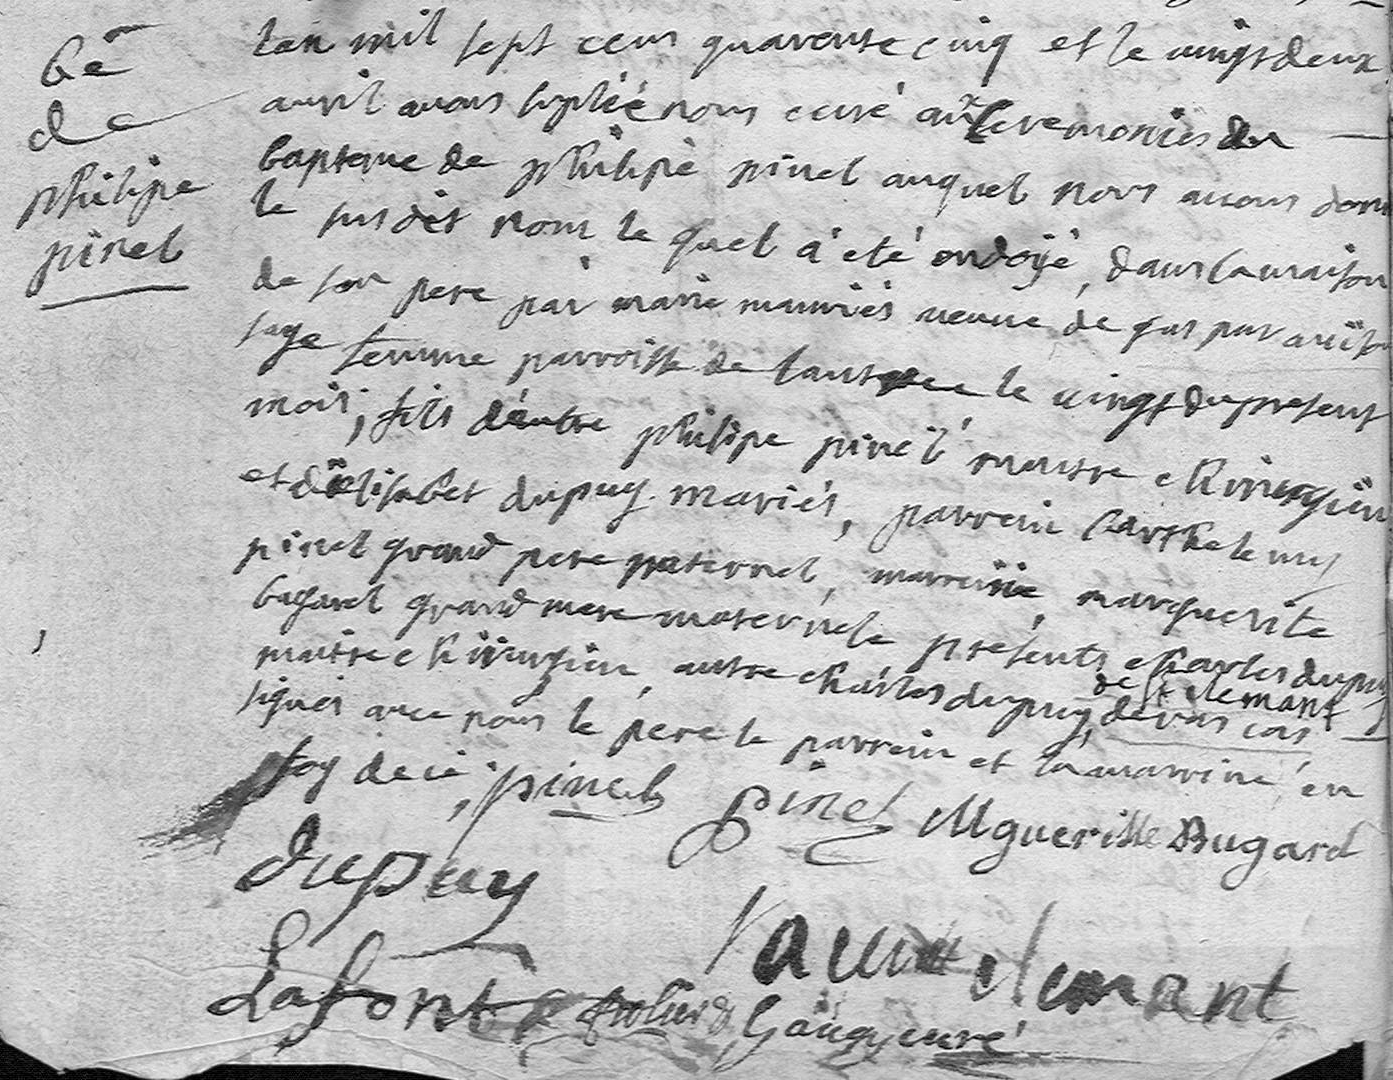 Bê
de
philipe
pinel
lan mil sept cens quarente cinq et le vingt deux
avril avons suplée nous curé aux Ceremonies du
bapteme de philipe pinel auquel nous avons donn
le susdit nom le quel a été ondoyé, dans la maison
de son pere par marie mauriés veuve de
sage femme parroisse de le vingt du present
mois, fils d'entre philipe pinel maitre chirurgien
et d'elisabet dupuy mariés, parrein barthelemy
pinel grand pere paternel, marreine marguerite
bugarel grand mere maternele présents charles dupuy
maitre chirurgien, autre charles dupuy de
de St clemant
signés avec nous le pere le parrein et la marrine en
foy de ce. pinel pinel Mgueritte Bugarel
Dupuy
clemant
Lafont Gaugy curé